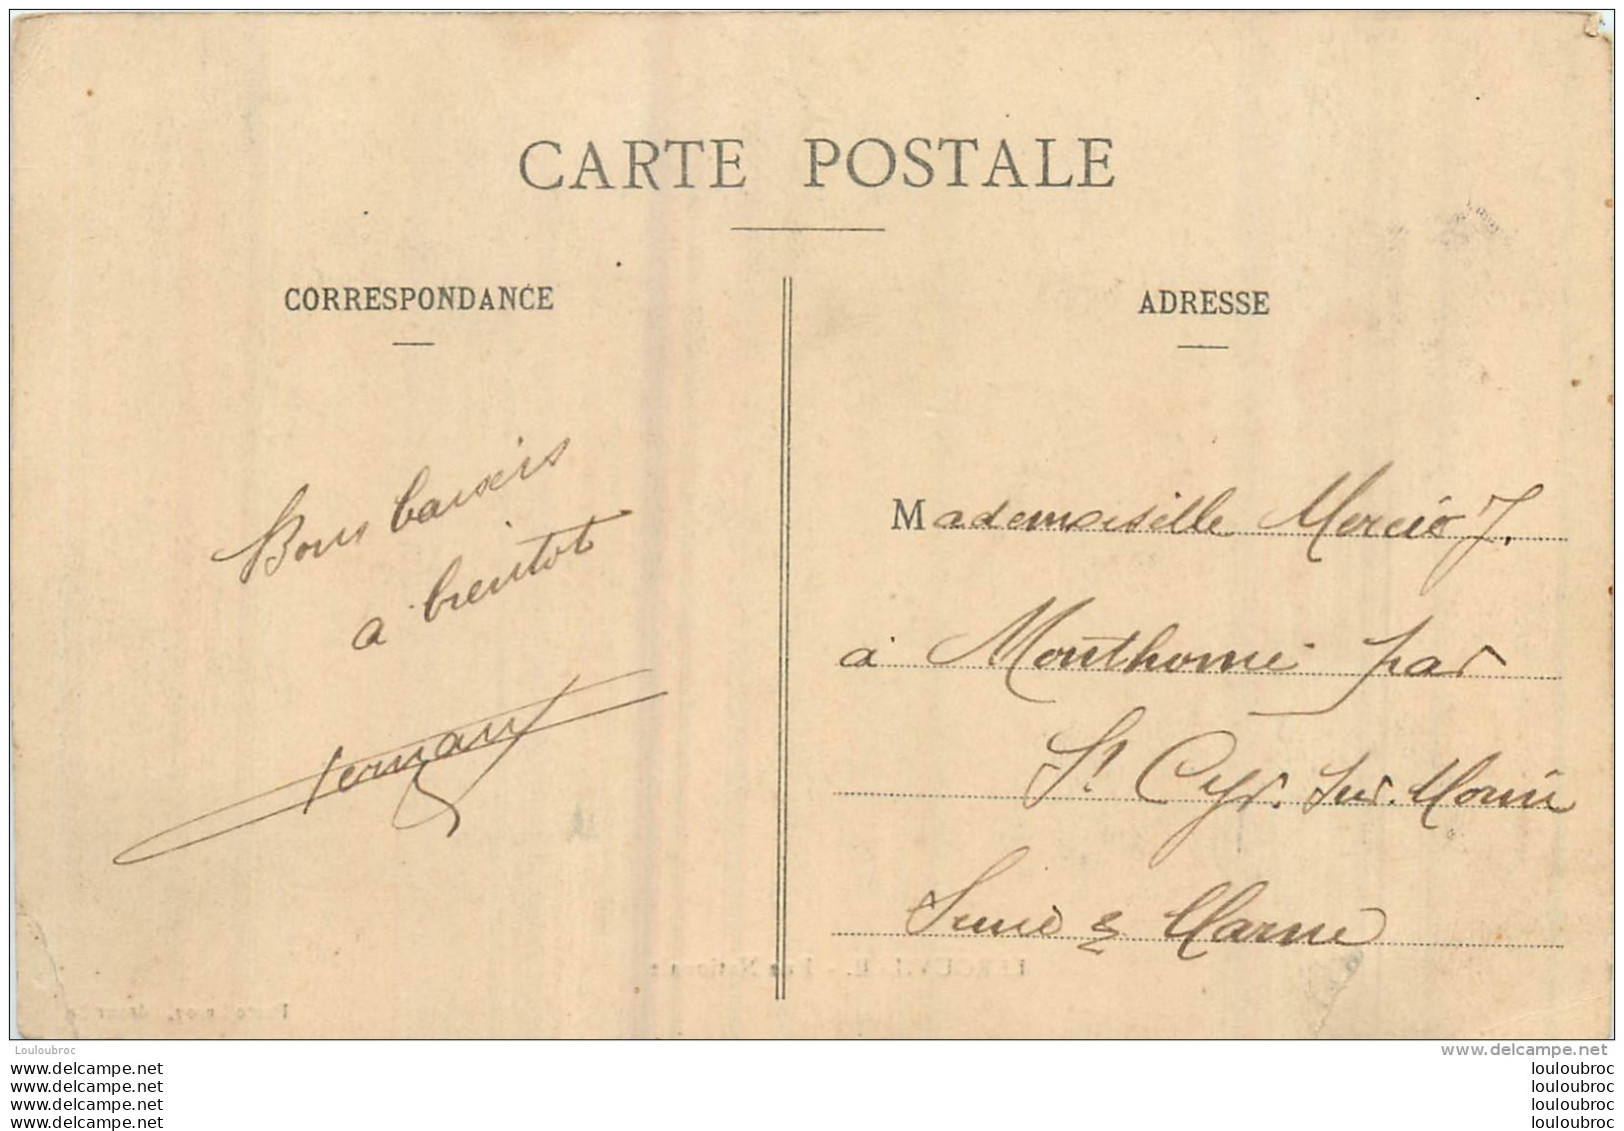 CARTE POSTALE
CORRESPONDANCE
ADRESSE
Bons baisers
a bientot
Fernand
Mademoiselle Mercier J.
à Monthomé par
St Cyr. sur. Morin
Seine & Marne
Louloubroc
www.delcampe.net
www.delcampe.net
www.delcampe.net
www.delcampe.net
www.delcampe.net
louloubroc
louloubroc
louloubroc
louloubroc